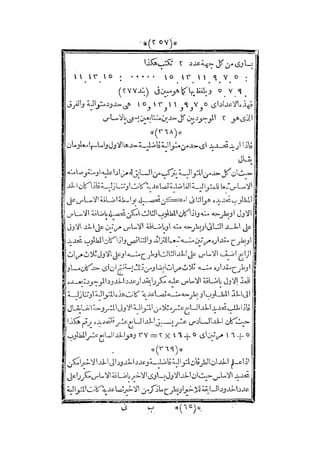 *(٢٥٧)*
يساوى من كل جهة عدد ٢ تكتب هكذا
٥ , ٧ , ٩ , ١١ , ١٣ , ١٥ ٠٠٠٠٠ : ١٥ , ١٣ , ١١
٩ , ٧ , ٥ ويلفظ بها كما هو مبين فى (بند ٢٧٧)
فهذه الاعداد اى ٥ و ٧ و ٩ و ١١ و ١٣ و ١٥ هى حدود متوالية والفرق
الذى هو ٢ الموجود بين كل حدين متتابعين يسمى بالاساس
*(٣٦٨)*
فاذا اريد تحديد اى حد من متوالية فاضلية حدها الاول واساسها معلومان
يقال
حيث ان كل حد من المتوالية يتركب من السابق له مزادا عليه او منقوصا منه
الاساس تبعا للمتوالية الفاضلية تصاعدية كانت او تنازلية فاذا كان الحد
المطلوب تحديده هو الثانى امكن تحصيله بواسطة اضافة الاساس على
الاول او بطرحه منه واذا كان المطلوب الثالث امكن تحصيله باضافة الاساس
على الحد الثانى او بطرحه منه او باضافة الاساس مرتين على الحد الاول
او بطرح مقداره مرتين منه تبعا للتزايد والتناقص واذا كان المطلوب تحديد
الرابع اضيف الاساس على الحد الثالث او طرح منه وعلى الاول ثلاث مرات
او طرح مقداره منه ثلاث مرات ايضا ومن ذلك يستنتج ان اى حد كان مساو
للحد الاول باضافة الاساس عليه مكررا بقدر عدد الحدود الموجودة بعده
الى الحد المطلوب او بطرحه منه تصاعدية كانت هذه المتوالية او تنازلية
فاذا طلب تحديد الحد السابع عشر مثلا من المتوالية الاولى المشروحة انفا يقال
حيث كان الحد السادس عشر يسبق الحد السابع عشر فتحديده يرقم هكذا
٥ + ١٦ مرتين اى ٥ + ١٦ × ٢ = ٣٧ وهو الحد السابع عشر المطلوب
*(٣٦٩)*
اذا علم الحدان الطرفان لمتوالية فاضلية وعدد الحدود الى الحد الاخير امكن
تحديد الاساس حيث ان الحد الاول يساوى الاخير باضافة الاساس مكررا على
عدد الحدود السابقة للاخير او بطرح ما ذكر من الاخير تصاعدية كانت المتوالية
*(٦٥)* ب نى